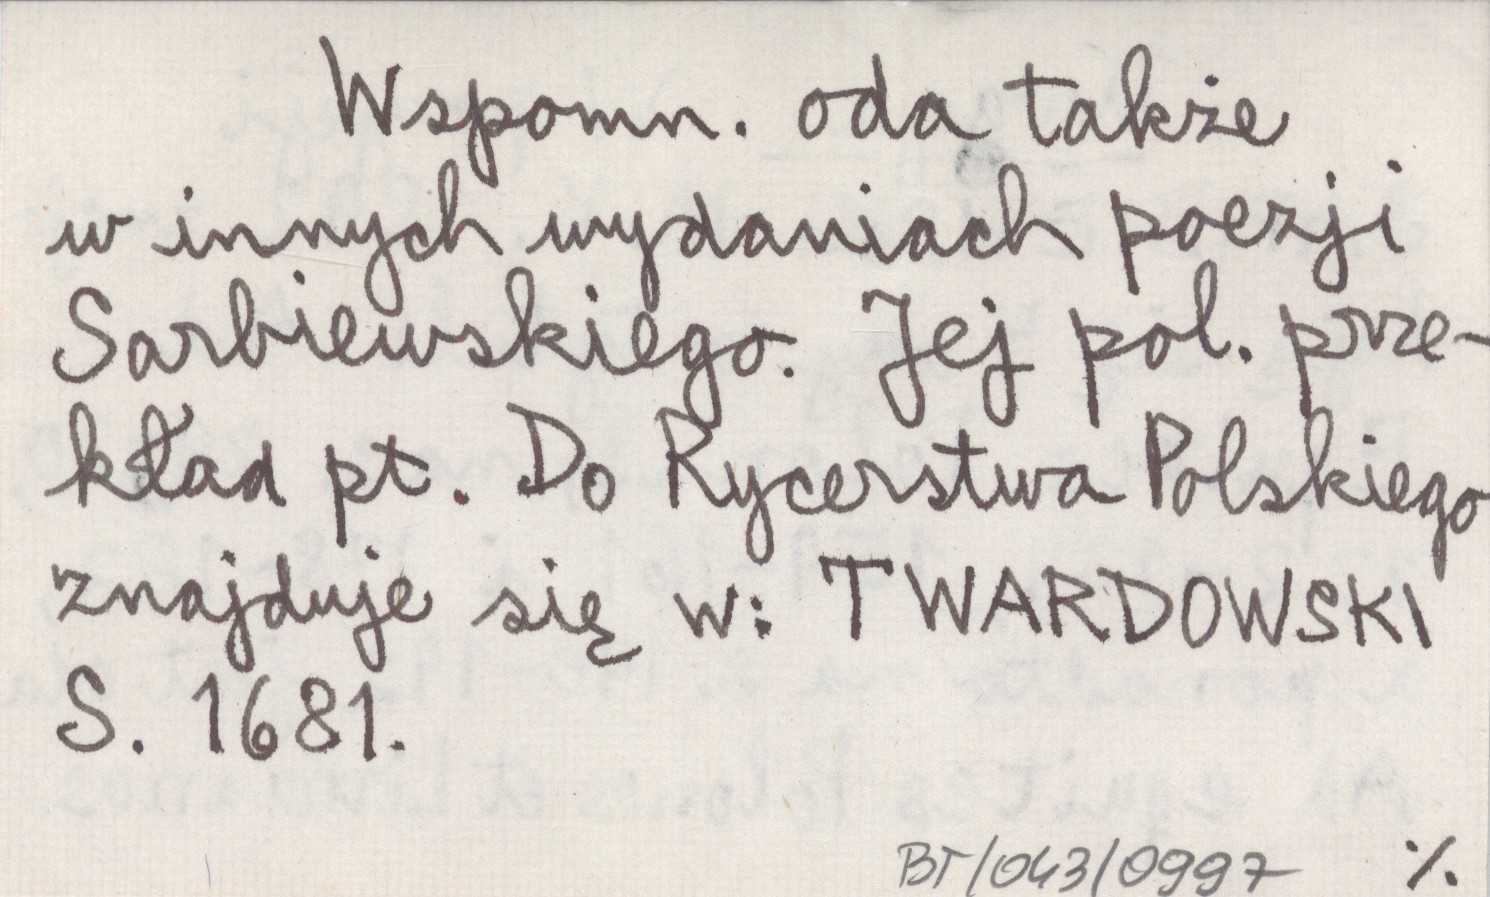 Wspomn. oda także
w innych wydaniach poezji
Sarbiewskiego. Jej pol. prze-
kład pt. Do Rycerstwa Polskiego
znajduje się w: TWARDOWSKI
S. 1681.
BT/043/0997 ./.